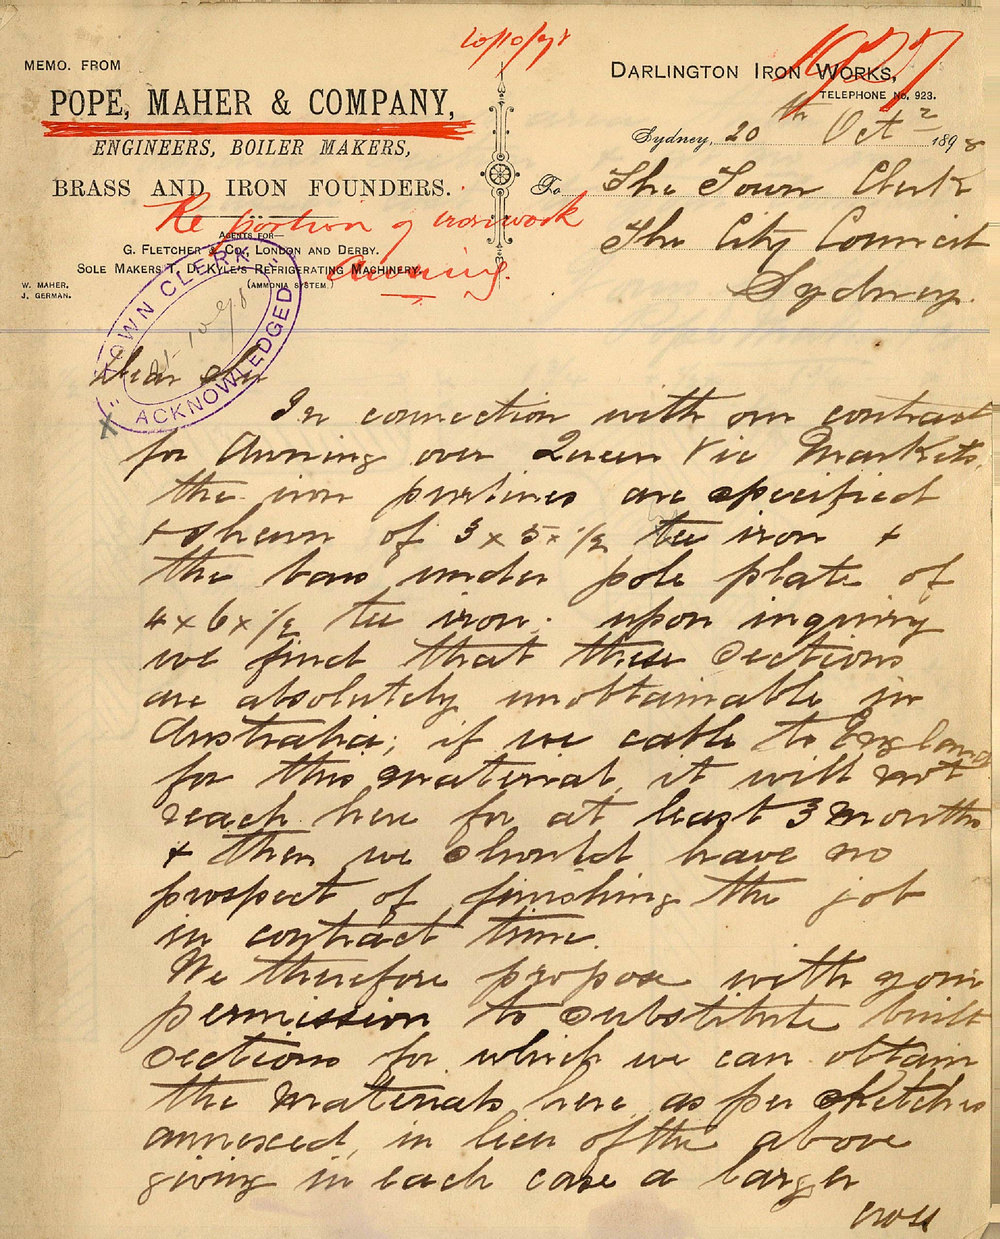 20/10/98
1927
MEMO. FROM
POPE, MAHER & COMPANY,
ENGINEERS, BOILER MAKERS,
BRASS AND IRON FOUNDERS.
AGENTS FOR—
G. FLETCHER & CO. LONDON AND DERBY.
SOLE MAKERS T. D. KYLE'S REFRIGERATING MACHINERY.
(AMMONIA SYSTEM.)
W. MAHER.
J. GERMAN.
DARLINGTON IRON WORKS,
TELEPHONE No. 923.
Sydney, 20th Octr 1898
To The Town Clerk
The City Council
Sydney.
Re portion of ironwork
awning.
"TOWN CLERK"
21-10-98
ACKNOWLEDGED
X
Dear Sir
In connection with our contract
for Awning over Queen Vic Markets,
the iron purlines are specified
+ shewn of 3 x 5 x 1/2 tee iron +
the bars under pole plate of
4 x 6 x 1/2 tee iron. upon inquiry
we find that these sections
are absolutely unobtainable in
Australia; if we cable to England
for this material, it will not
reach here for at least 3 months
+ then we should have no
prospect of finishing the job
in contract time.
We therefore propose with your
permission to substitute built
sections for which we can obtain
the materials here, as per sketches
annexed, in lieu of the above
giving in each case a larger
cross